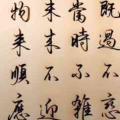 既過不戀
當時不雜
未來不迎
物來順應